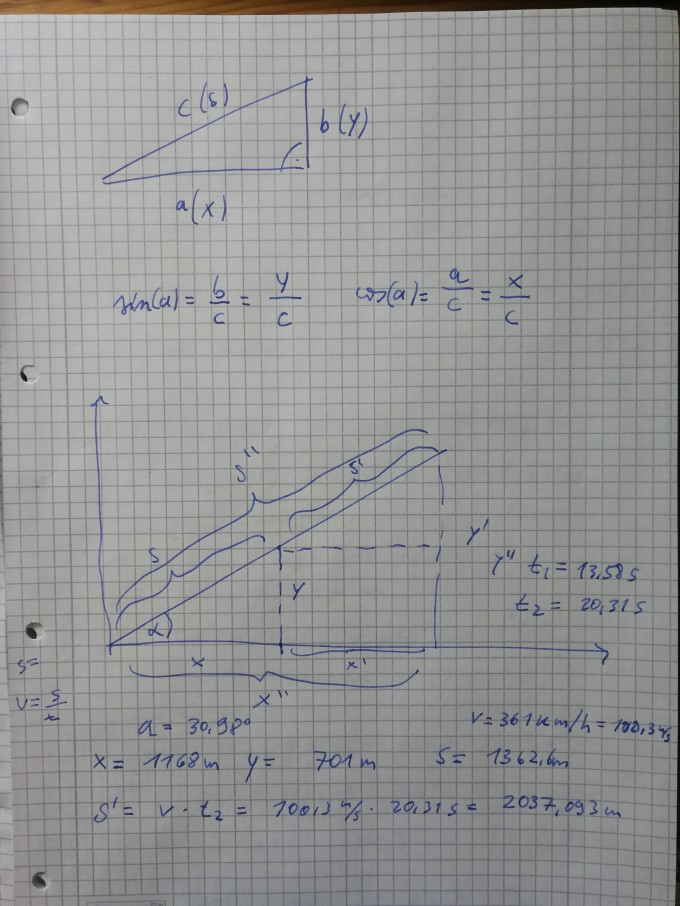 c (s)
b (y)
a (x)
sin(a) = b/c = y/c cos(a) = a/c = x/c
s''
s'
s
y'
y'' t₁ = 13,58 s
y
t₂ = 20,31 s
α
s =
x x'
v = s/
x''
a = 30,98° v = 361 km/h = 100,3 m/s
x = 1168 m y = 701 m s = 1362,6 m
s' = v · t₂ = 100,3 m/s · 20,31 s = 2037,093 m